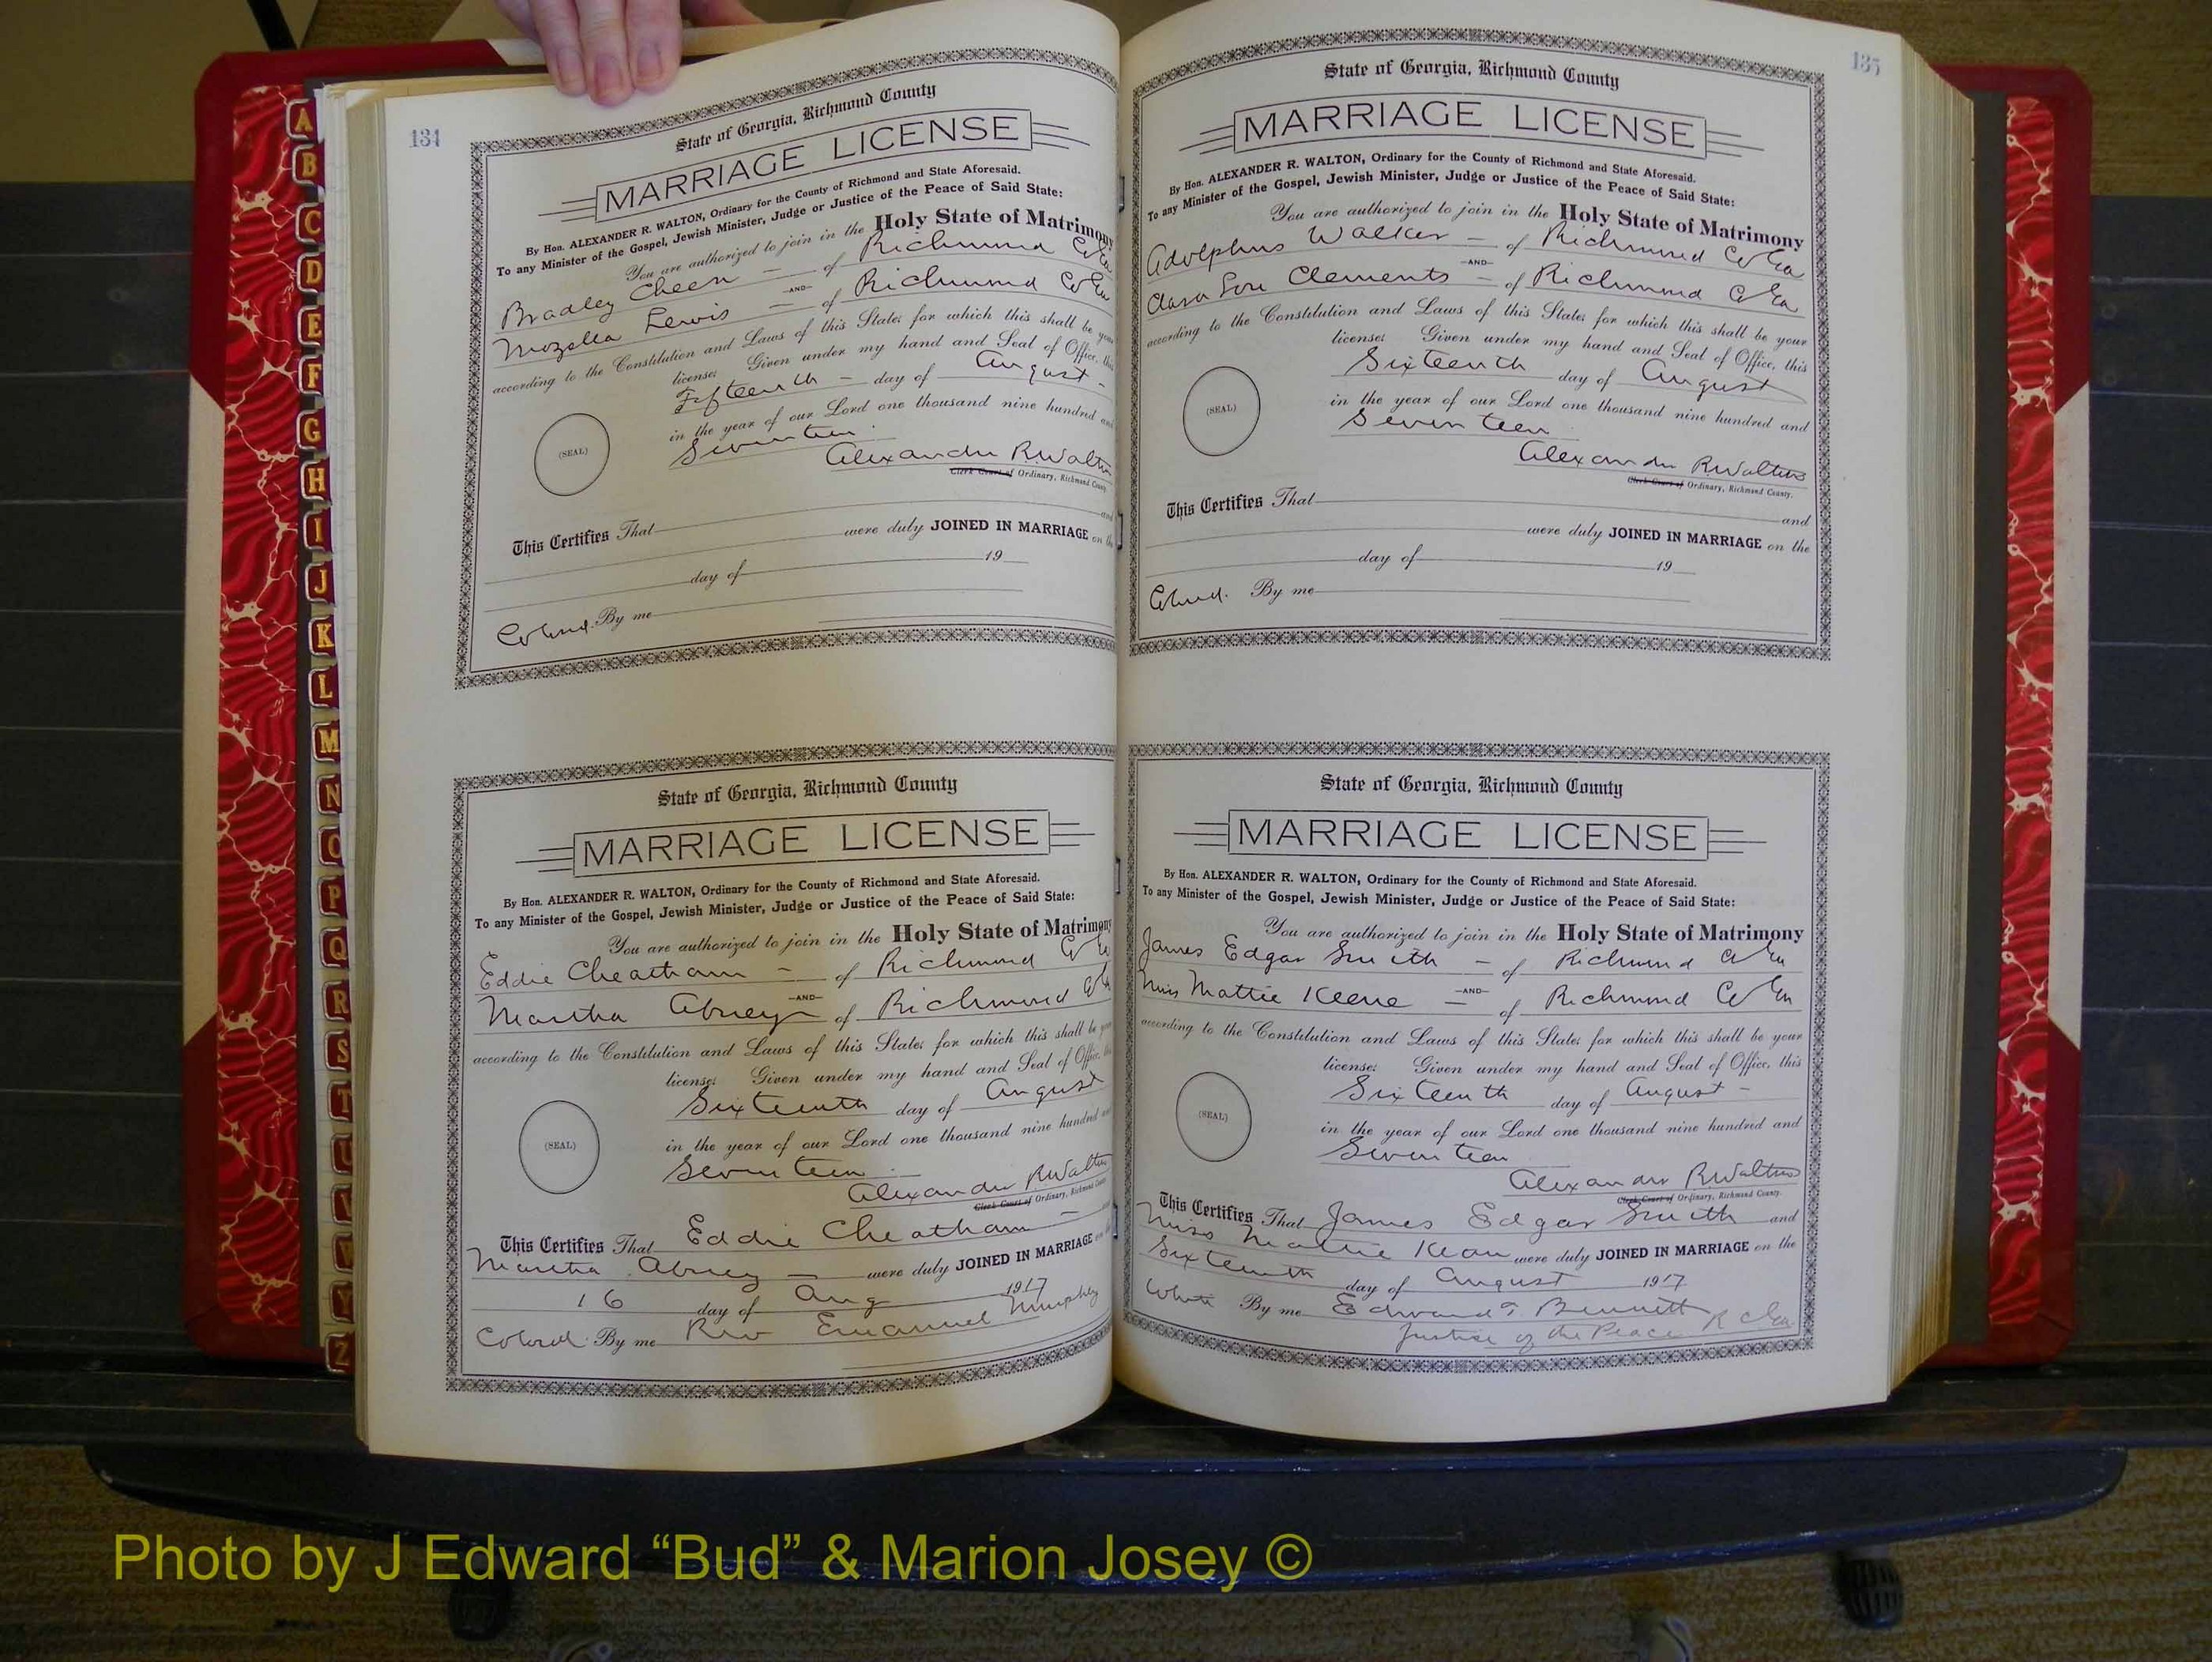 A
B
C
D
E
F
G
H
I
J
K
L
M
N
O
P
Q
R
S
T
U
V
W
Y
Z
134
State of Georgia, Richmond County
MARRIAGE LICENSE
By Hon. ALEXANDER R. WALTON, Ordinary for the County of Richmond and State Aforesaid.
To any Minister of the Gospel, Jewish Minister, Judge or Justice of the Peace of Said State:
You are authorized to join in the Holy State of Matrimony
Bradley Cheen - of Richmond Co Ga
-AND-
Mozella Lewis - of Richmond Co Ga
according to the Constitution and Laws of this State; for which this shall be your
license; Given under my hand and Seal of Office, this
Fifteenth - day of August -
in the year of our Lord one thousand nine hundred and
(SEAL)
Seventeen.
Alexander R Walton
Clerk Court of Ordinary, Richmond County.
This Certifies That and
were duly JOINED IN MARRIAGE on the
day of 19
Colored. By me
State of Georgia, Richmond County
MARRIAGE LICENSE
By Hon. ALEXANDER R. WALTON, Ordinary for the County of Richmond and State Aforesaid.
To any Minister of the Gospel, Jewish Minister, Judge or Justice of the Peace of Said State:
You are authorized to join in the Holy State of Matrimony
Eddie Cheatham - of Richmond Co Ga
-AND-
Martha Abney of Richmond Co Ga
according to the Constitution and Laws of this State; for which this shall be your
license; Given under my hand and Seal of Office, this
Sixteenth day of August
(SEAL)
in the year of our Lord one thousand nine hundred and
Seventeen
Alexander R Walton
Clerk Court of Ordinary, Richmond County
This Certifies That Eddie Cheatham -
Martha Abney - were duly JOINED IN MARRIAGE on
16 day of Aug 1917
Colored By me Rev Emanuel Murphy
135
State of Georgia, Richmond County
MARRIAGE LICENSE
By Hon. ALEXANDER R. WALTON, Ordinary for the County of Richmond and State Aforesaid.
To any Minister of the Gospel, Jewish Minister, Judge or Justice of the Peace of Said State:
You are authorized to join in the Holy State of Matrimony
Adolphus Walker - of Richmond Co Ga
-AND-
Clara Lou Clements - of Richmond Co Ga
according to the Constitution and Laws of this State; for which this shall be your
license; Given under my hand and Seal of Office, this
Sixteenth day of August
(SEAL)
in the year of our Lord one thousand nine hundred and
Seventeen
Alexander R Walton
Clerk Court of Ordinary, Richmond County.
This Certifies That and
were duly JOINED IN MARRIAGE on the
day of 19
Colored. By me
State of Georgia, Richmond County
MARRIAGE LICENSE
By Hon. ALEXANDER R. WALTON, Ordinary for the County of Richmond and State Aforesaid.
To any Minister of the Gospel, Jewish Minister, Judge or Justice of the Peace of Said State:
You are authorized to join in the Holy State of Matrimony
James Edgar Smith - of Richmond Co Ga
-AND-
Miss Mattie Keene - of Richmond Co Ga
according to the Constitution and Laws of this State; for which this shall be your
license; Given under my hand and Seal of Office, this
Sixteenth day of August -
(SEAL)
in the year of our Lord one thousand nine hundred and
Seventeen
Alexander R Walton
Clerk Court of Ordinary, Richmond County.
This Certifies That James Edgar Smith and
Miss Mattie Kean were duly JOINED IN MARRIAGE on the
Sixteenth day of August 1917
White By me Edward T. Bennett
Justice of the Peace R C Ga
Photo by J Edward “Bud” & Marion Josey ©